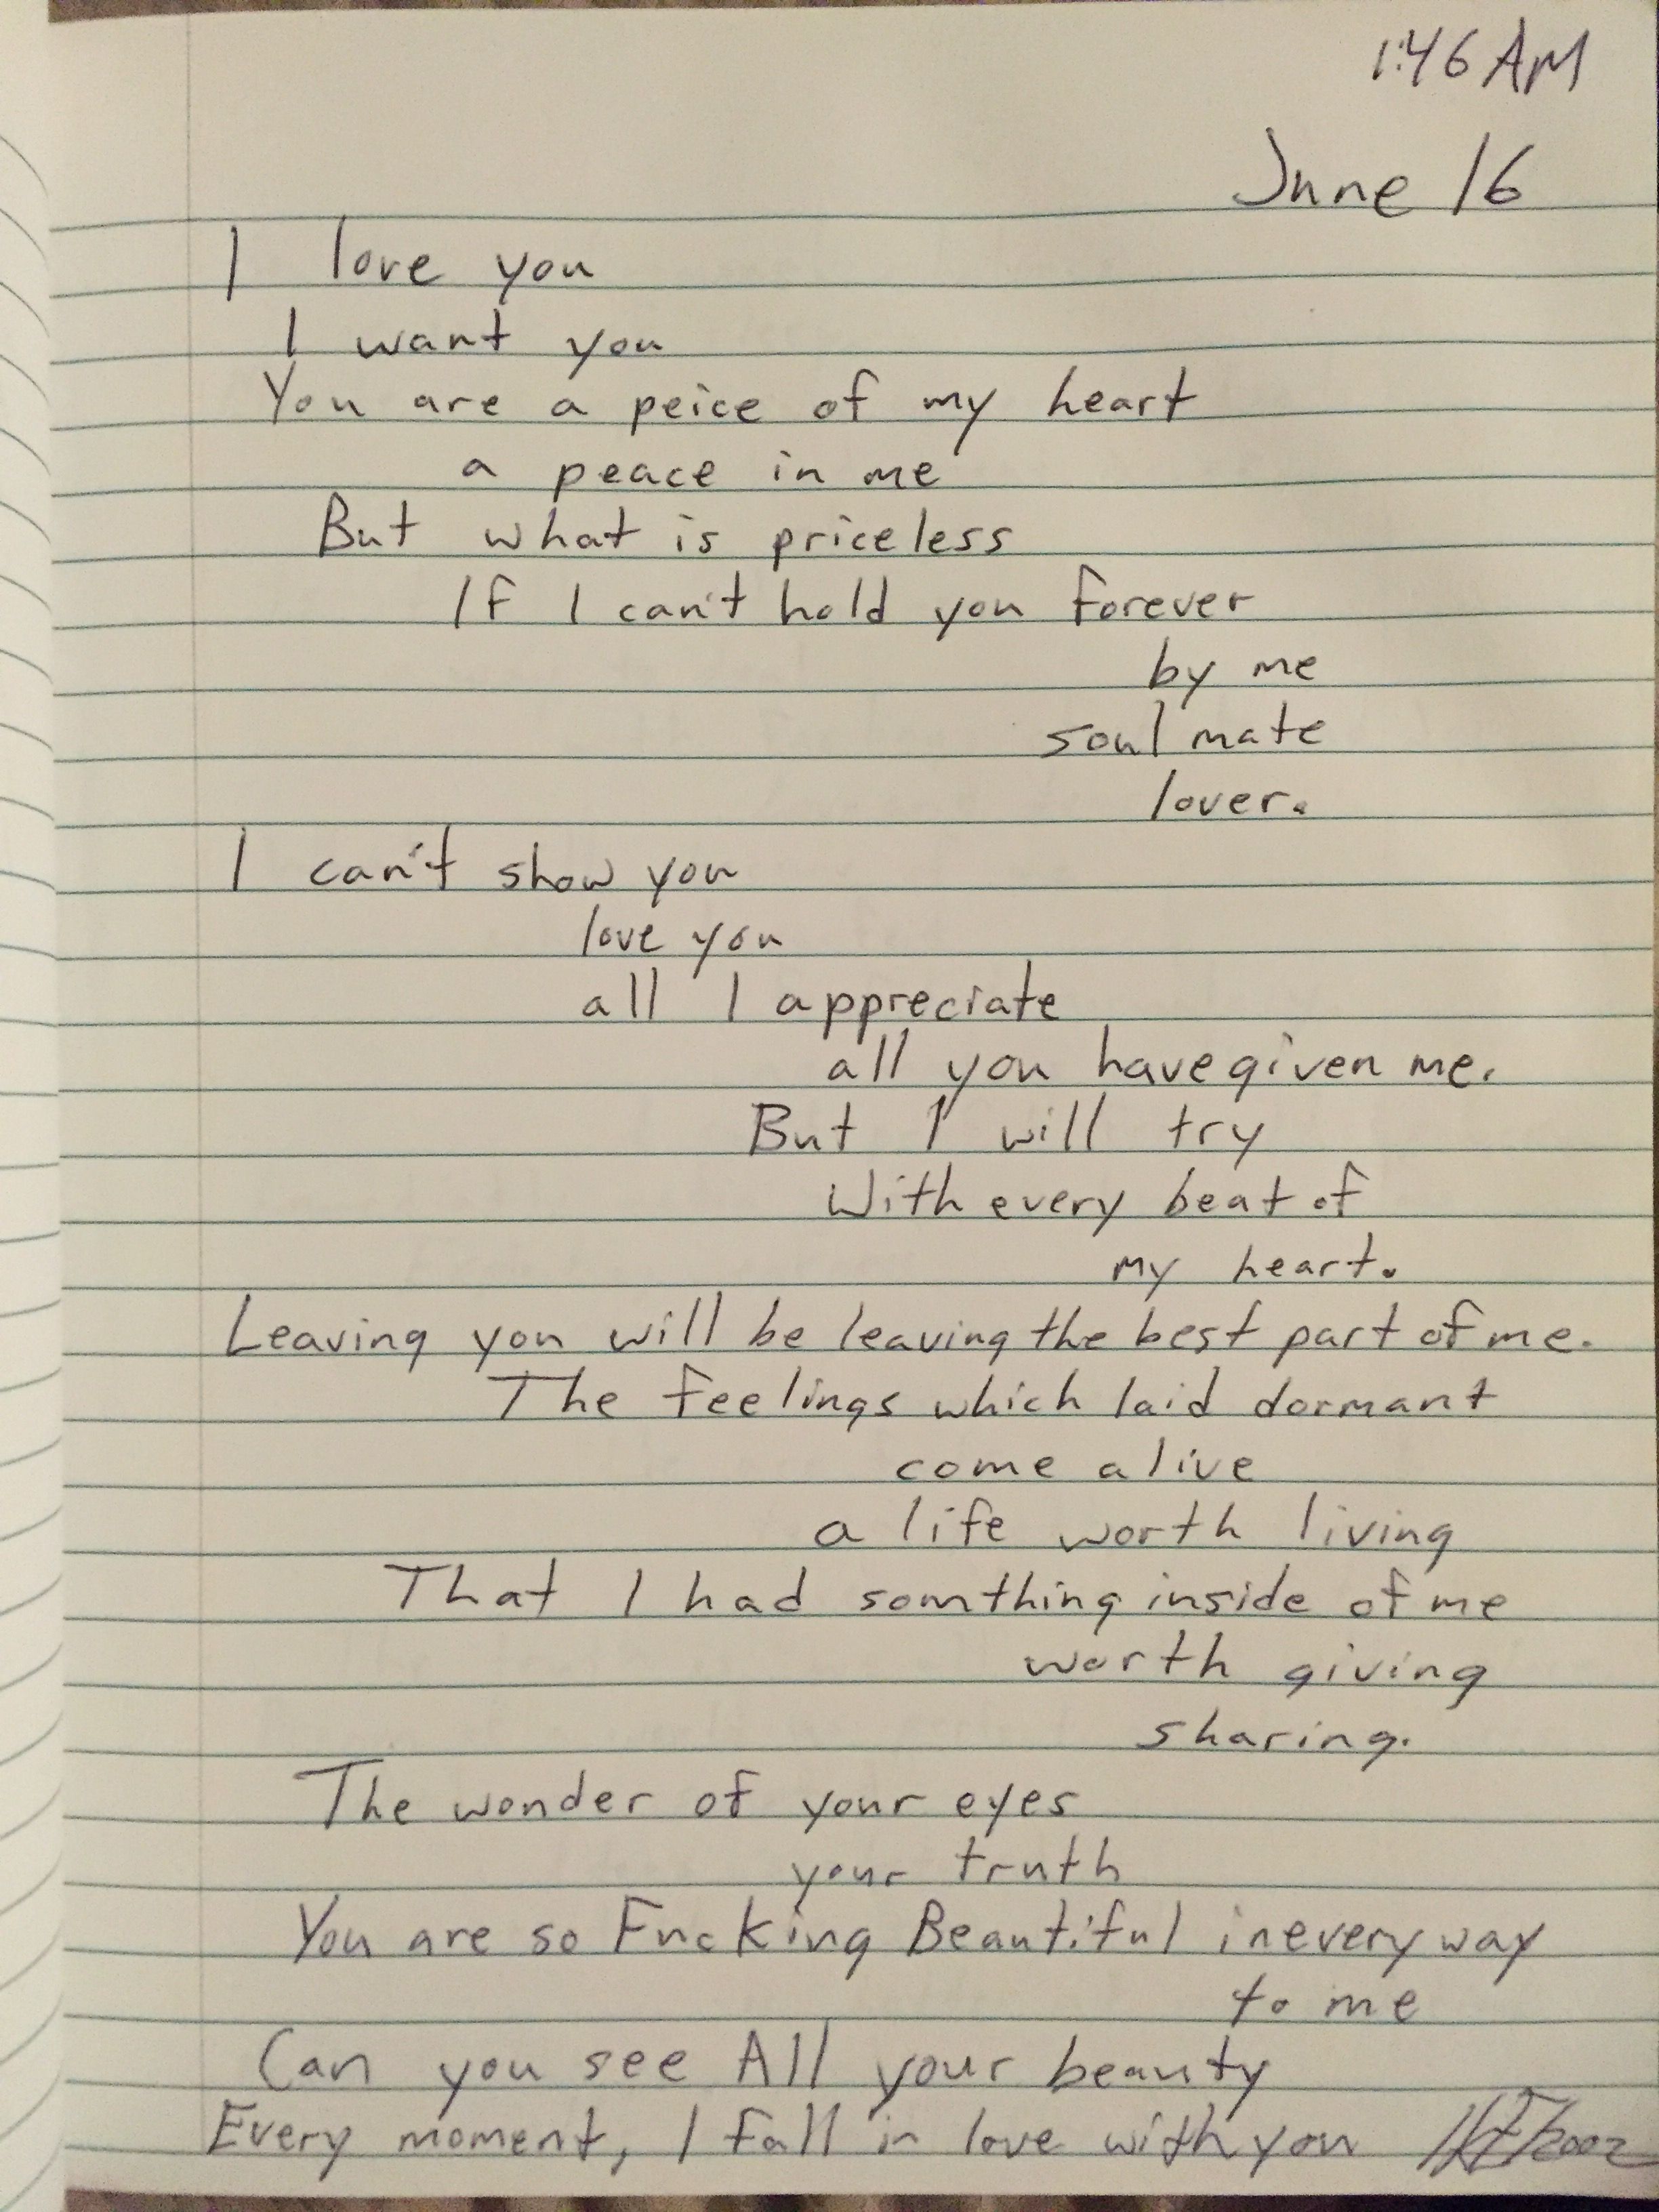 1:46 AM
June 16
I love you
I want you
You are a peice of my heart
a peace in me
But what is priceless
If I can't hold you forever
by me
soul mate
lover.
I can't show you
love you
all I appreciate
all you have given me.
But I will try
With every beat of
my heart.
Leaving you will be leaving the best part of me.
The feelings which laid dormant
come alive
a life worth living
That I had somthing inside of me
worth giving
sharing.
The wonder of your eyes
your truth
You are so Fucking Beautiful in every way
to me
Can you see All your beauty
Every moment, I fall in love with you /2002